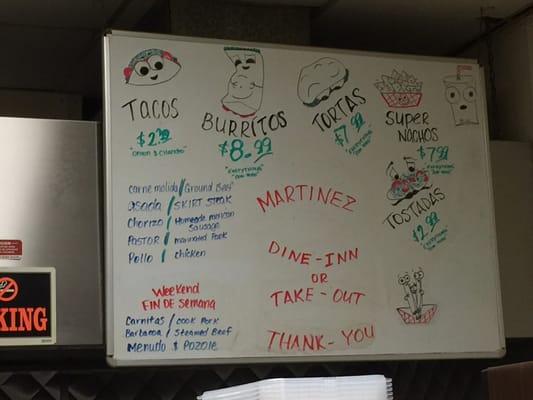 TACOS
$2.39
"ONION & CILANTRO"
BURRITOS
$8.99
"EVERYTHING'S
TORTAS
$7.99
"EVERYTHING'S
SUPER
NACHOS
$7.99
"EVERYTHING'S
TOSTADAS
$2.99
"EVERYTHING'S
carne molida/Ground Beef
asada / SKIRT STEAK
Chorizo / Homemade mexican
Sausage
PASTOR / marinated Pork
Pollo / chicken
Weekend
FIN DE Semana
Carnitas / cook Pork
Barbacoa / Steamed Beef
Menudo $ POZOLE
MARTINEZ
DINE-INN
OR
TAKE-OUT
THANK-YOU
KING